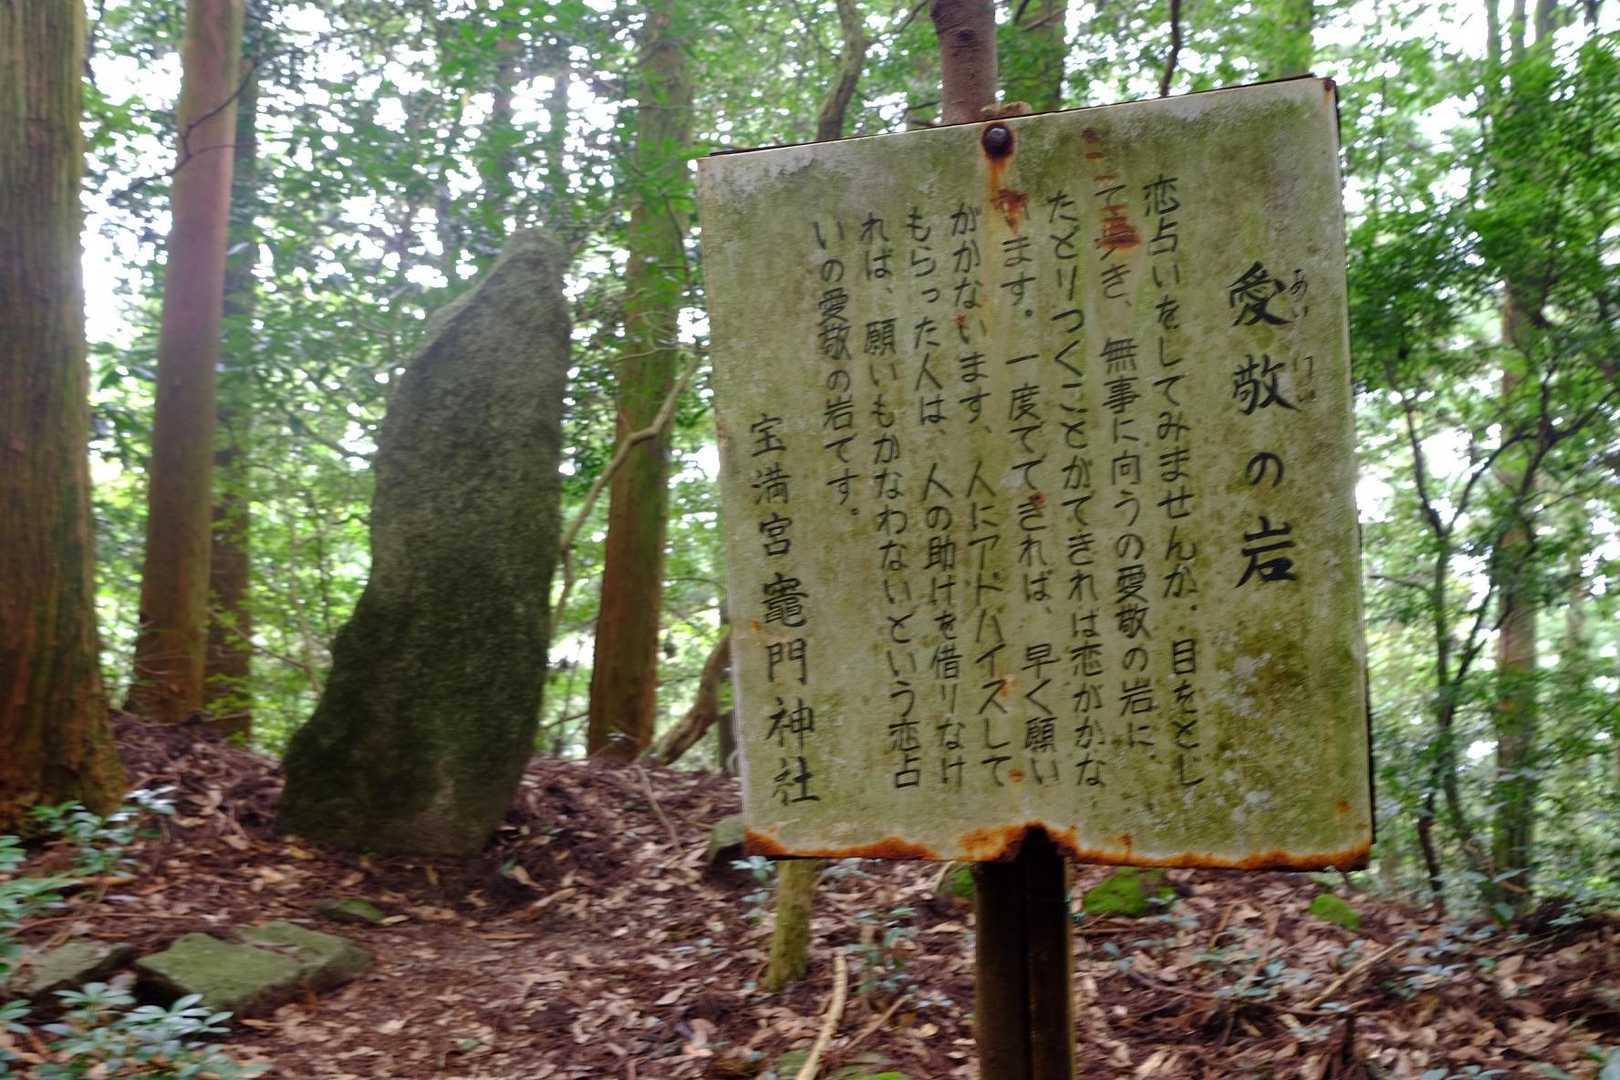 愛敬の岩
あい けい
恋占いをしてみませんか。目をとじ
て歩き、無事に向うの愛敬の岩に、
たどりつくことができれば恋がかな
います。一度でできれば、早く願い
がかないます、人にアドバイスして
もらった人は、人の助けを借りなけ
れば、願いもかなわないという恋占
いの愛敬の岩です。
宝満宮竈門神社